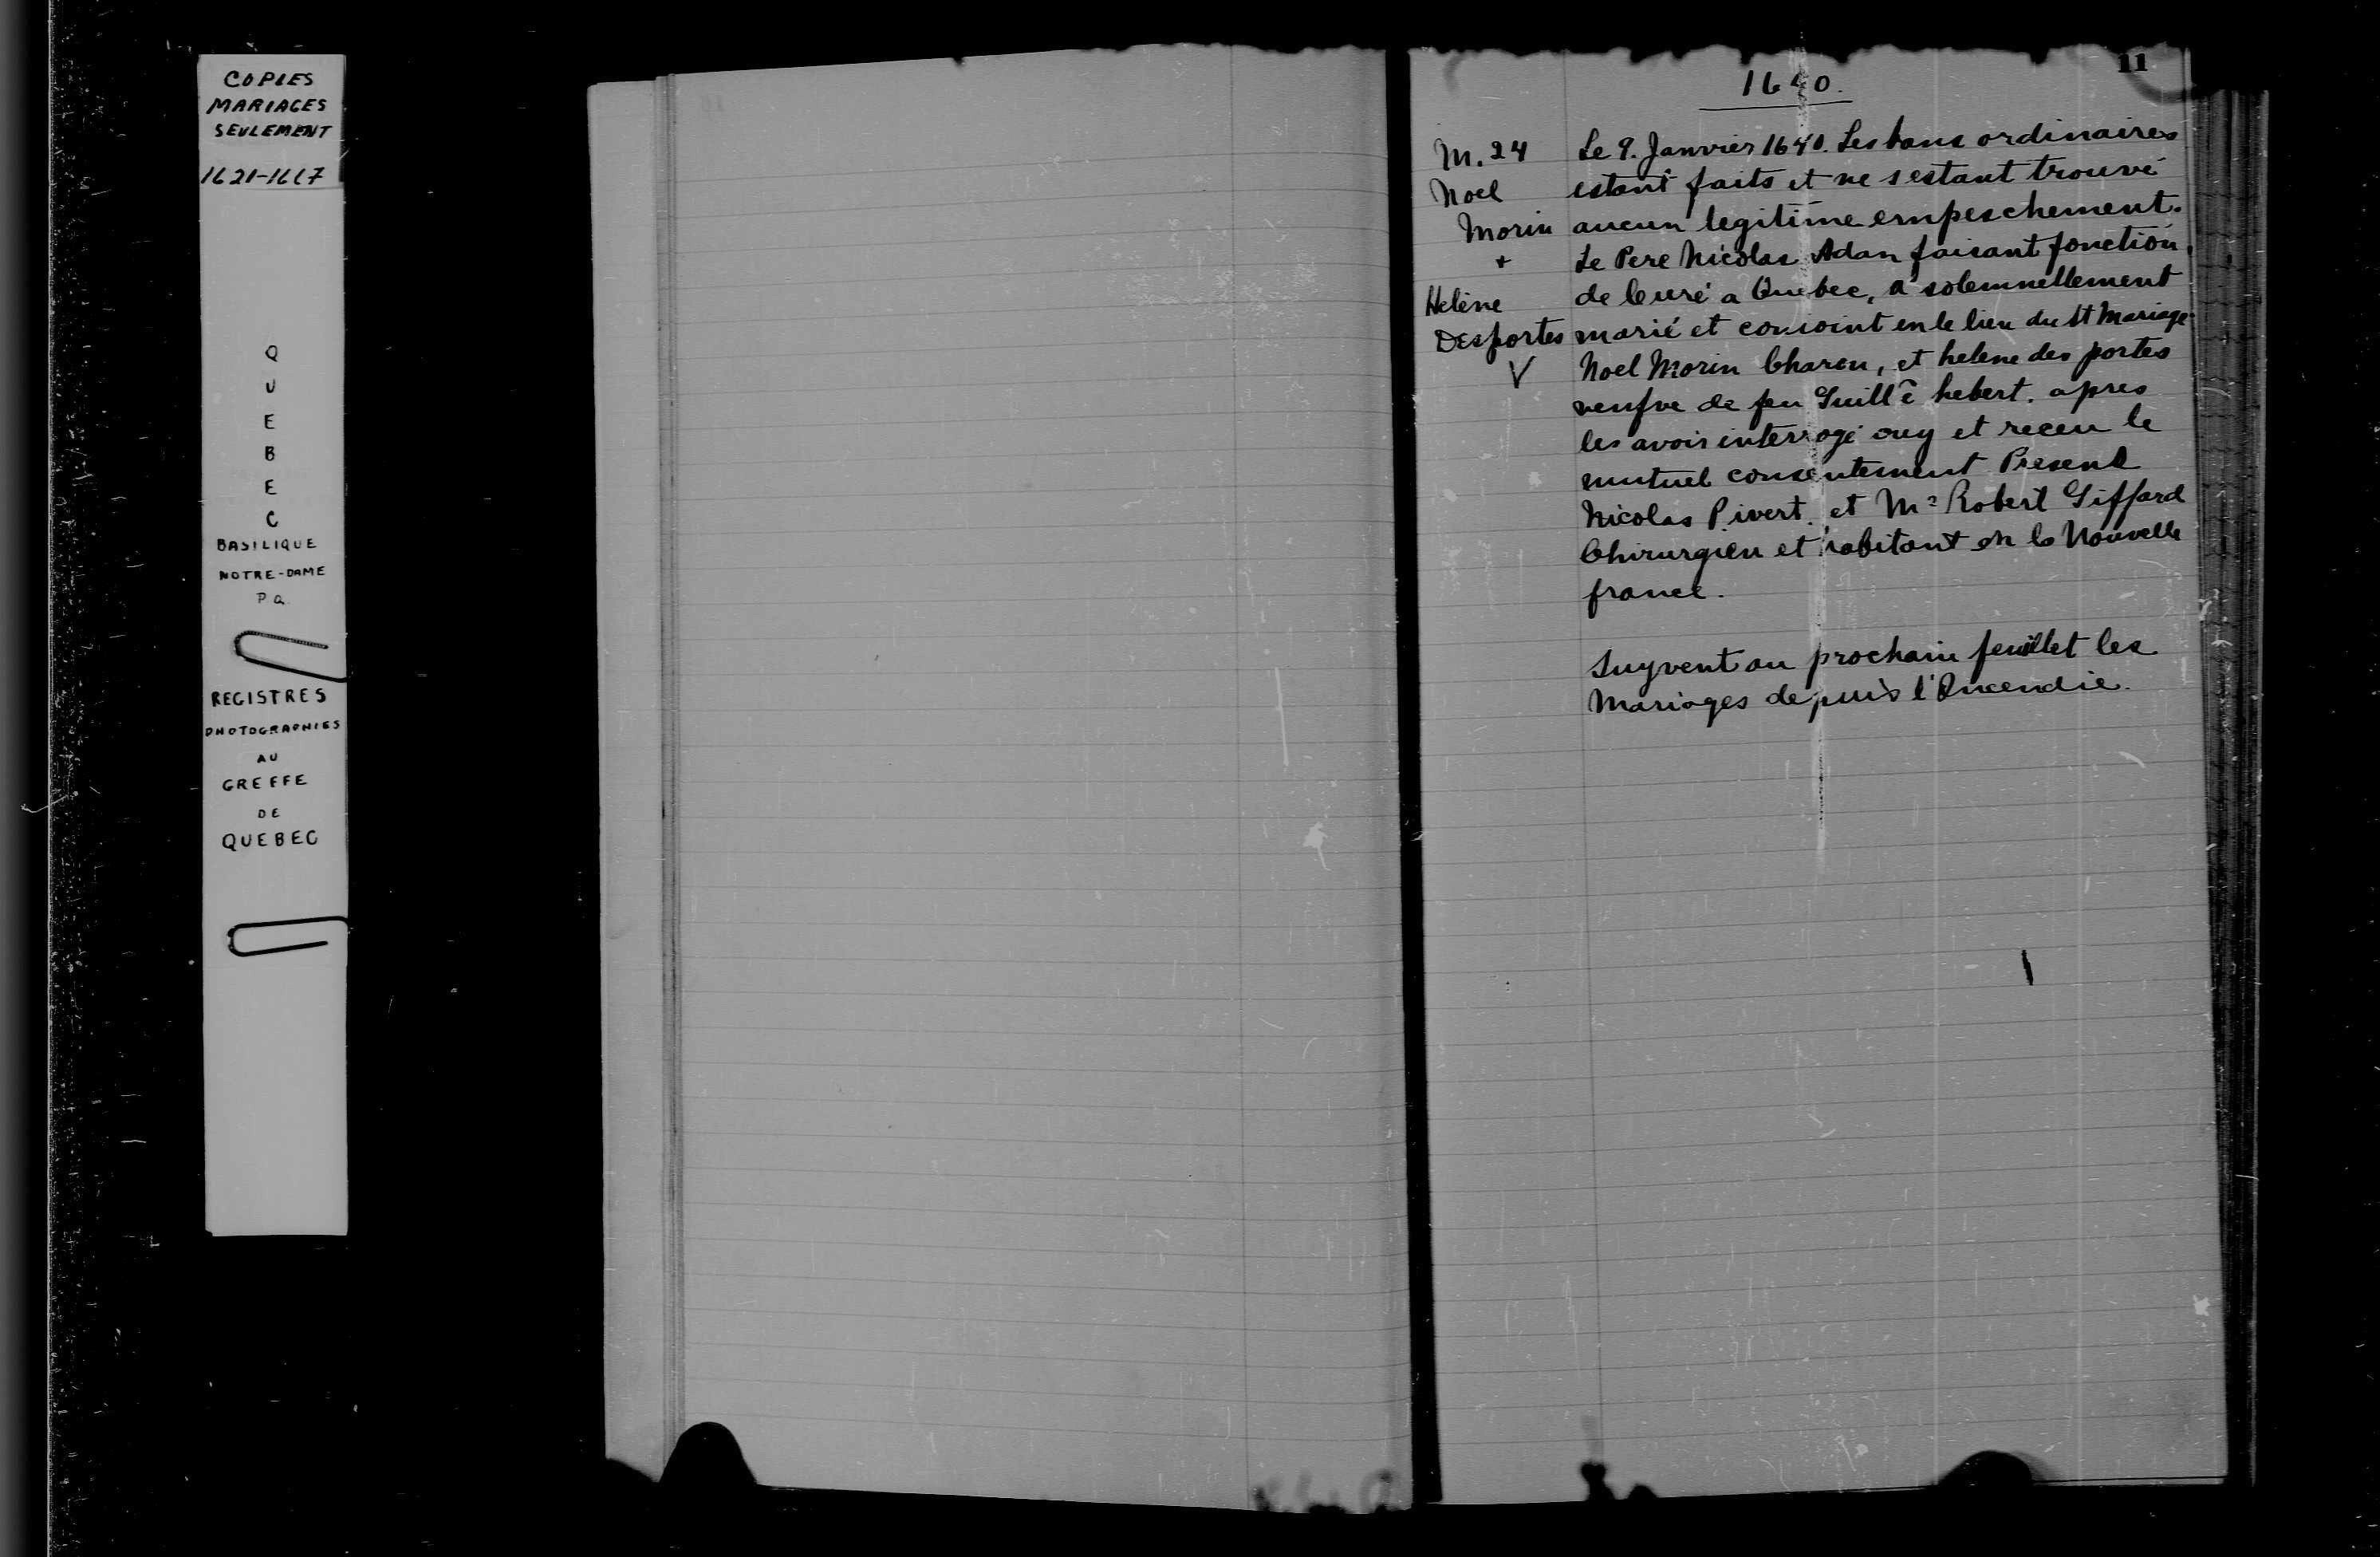 COPIES
MARIAGES
SEULEMENT
1621-1667
Q
U
E
B
E
C
BASILIQUE
NOTRE-DAME
P Q.
REGISTRES
PHOTOGRAPHIES
AU
GREFFE
DE
QUEBEC
11
1640.
M. 24
Noel
Morin
+
Helène
Desportes
V
Le 9. Janvier 1640. Les bans ordinaires
estant faits et ne s'estant trouvé
aucun legitime empeschement.
Le Pere Nicolas Adan faisant fonction
de Curé a Quebec, a solemnellement
marié et conioint en le lien du St Mariage
Noel Morin Charon, et helene des portes
veufve de feu Guill̃e hebert. apres
les avoir interrogé ouy et receu le
mutuel consentement Present
Nicolas Pivert. et Mr Robert Giffard
Chirurgien et habitant en la Nouvelle
france.
Suyvent au prochain feuillet les
Mariages depuis l'Incendie.